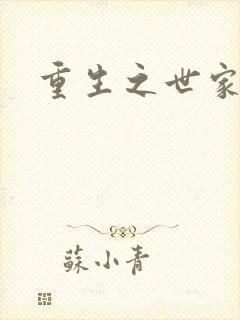 重生之世家
蘇小青